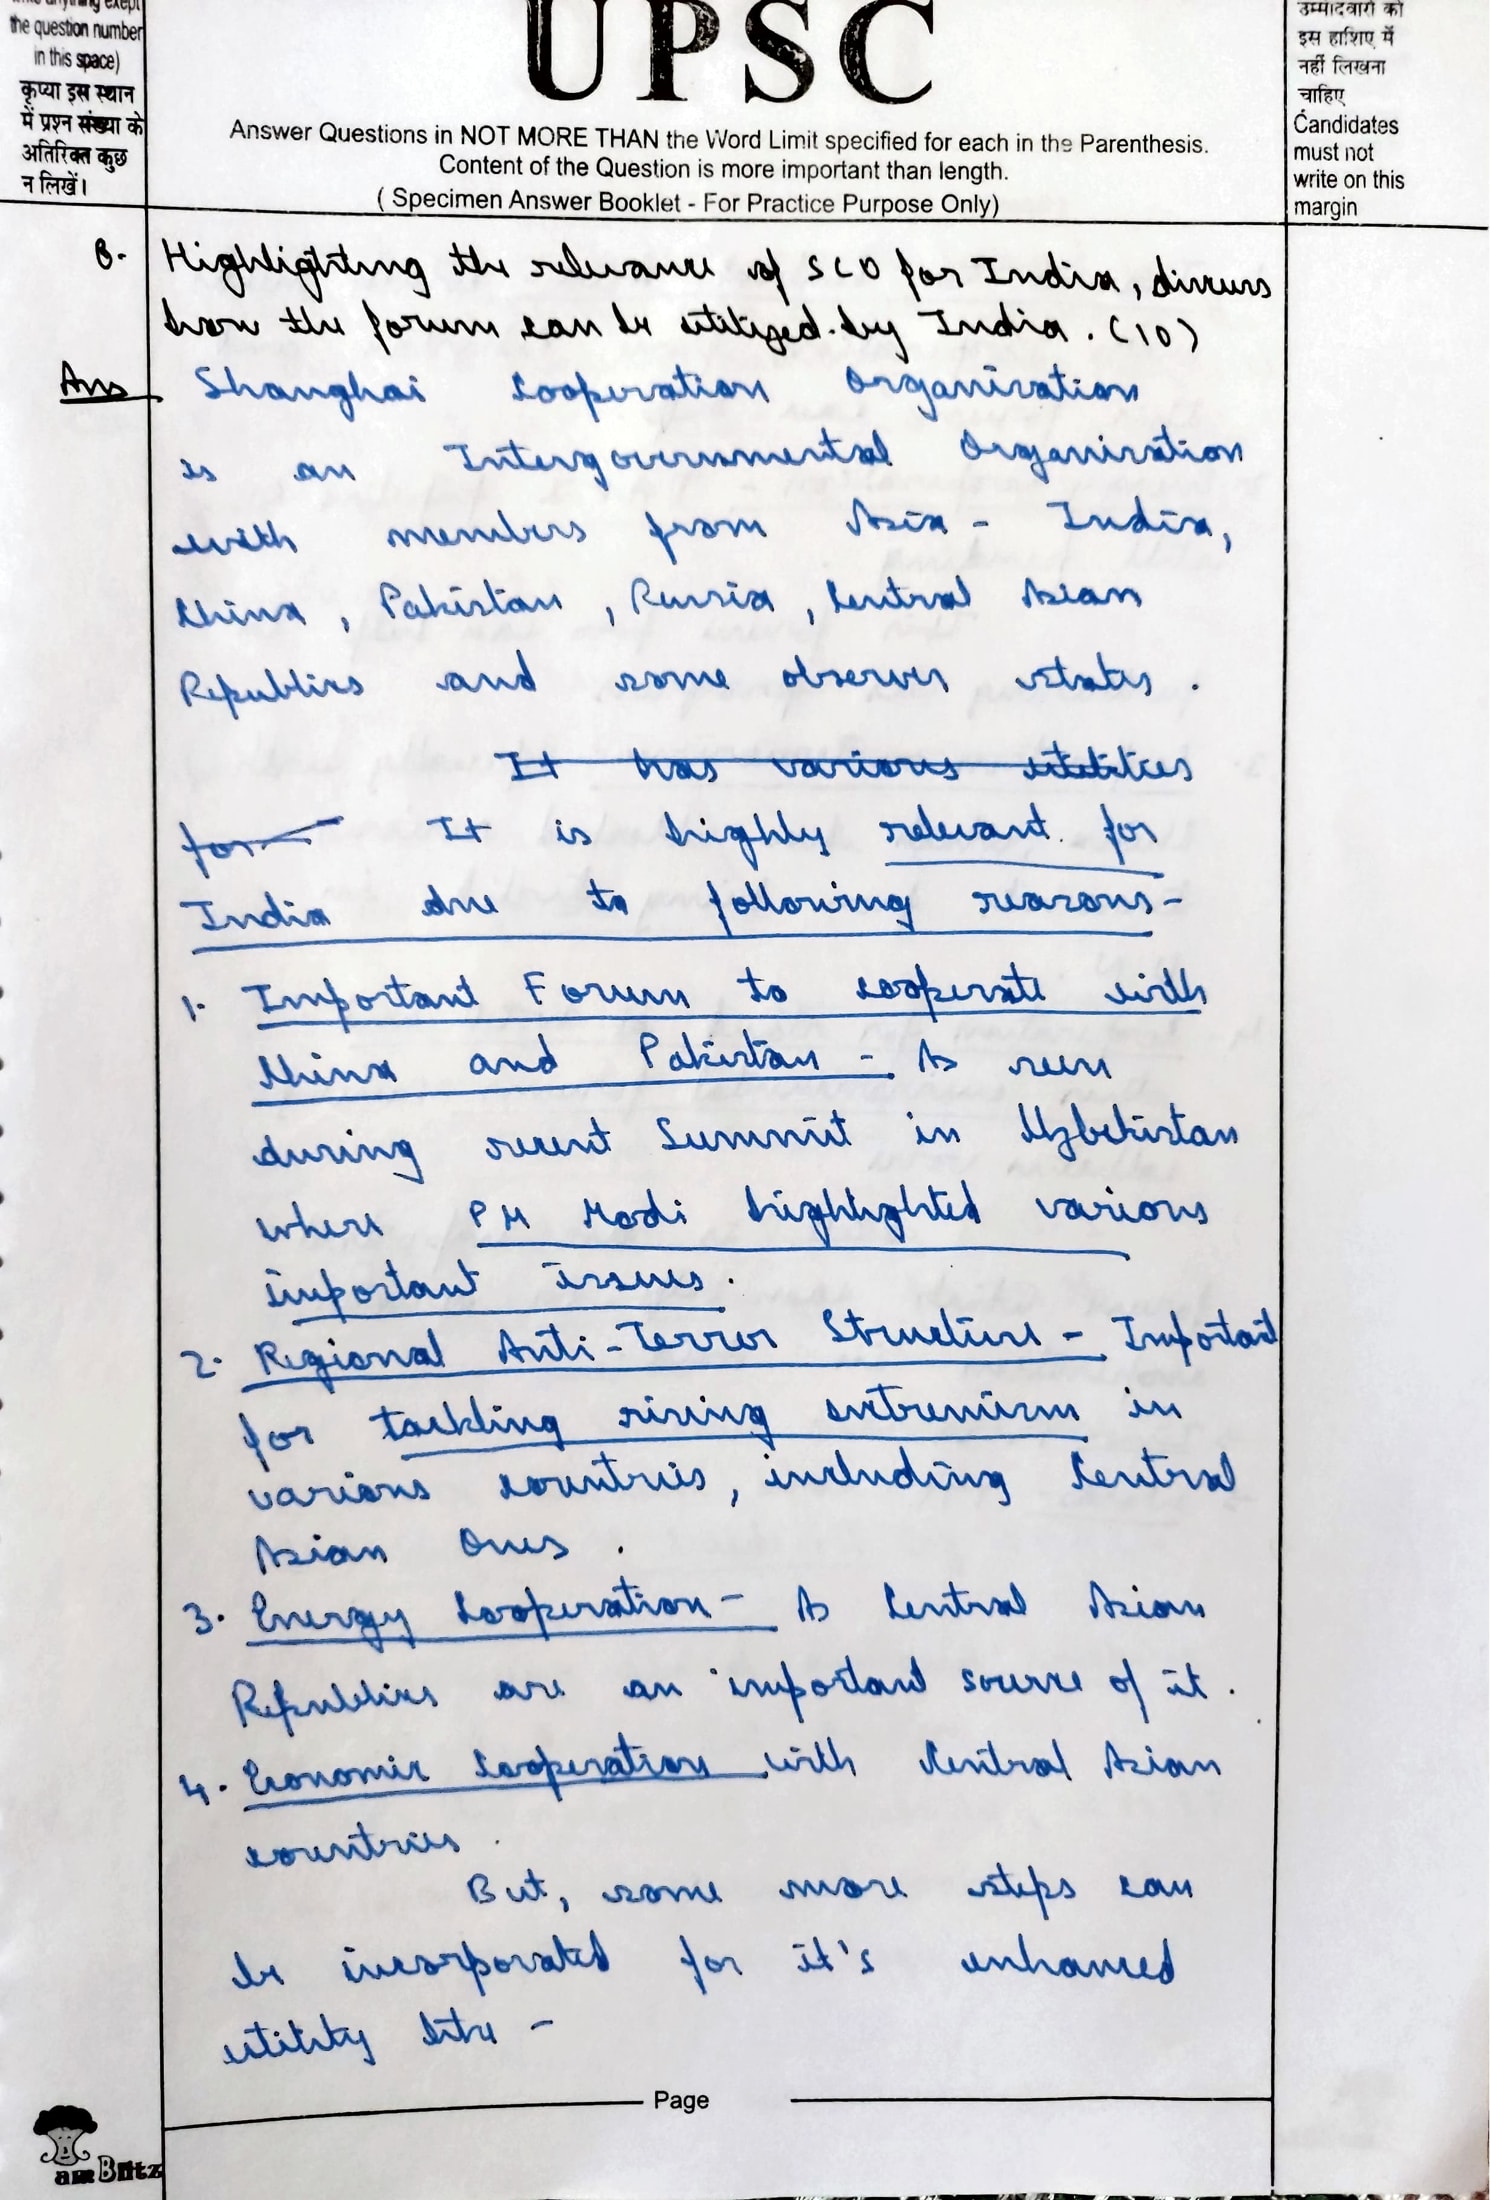 write anything exept
the question number
in this space)
कृप्या इस स्थान
में प्रश्न संख्या के
अतिरिक्त कुछ
न लिखें।
UPSC
Answer Questions in NOT MORE THAN the Word Limit specified for each in the Parenthesis.
Content of the Question is more important than length.
( Specimen Answer Booklet - For Practice Purpose Only)
उम्मीदवारों को
इस हाशिए में
नहीं लिखना
चाहिए
Candidates
must not
write on this
margin
Highlighting the relevance of SCO for India, discuss
how the forum can be utilized by India. (10)
Ans
Shanghai Cooperation Organisation
is an Intergovernmental Organisation
with members from Asia - India,
China, Pakistan, Russia, Central Asian
Republics and some observer states.
It has various utilities
for It is highly relevant for
India due to following reasons-
1. Important Forum to cooperate with
China and Pakistan - As seen
during recent Summit in Uzbekistan
where PM Modi highlighted various
important issues.
2. Regional Anti-Terror Structure - Important
for tackling rising extremism in
various countries, including Central
Asian Ones.
3. Energy Cooperation - As Central Asian
Republics are an important source of it.
4. Economic Cooperation with Central Asian
countries.
But, some more steps can
be incorporated for it's enhanced
utility like -
Page
am Blitz